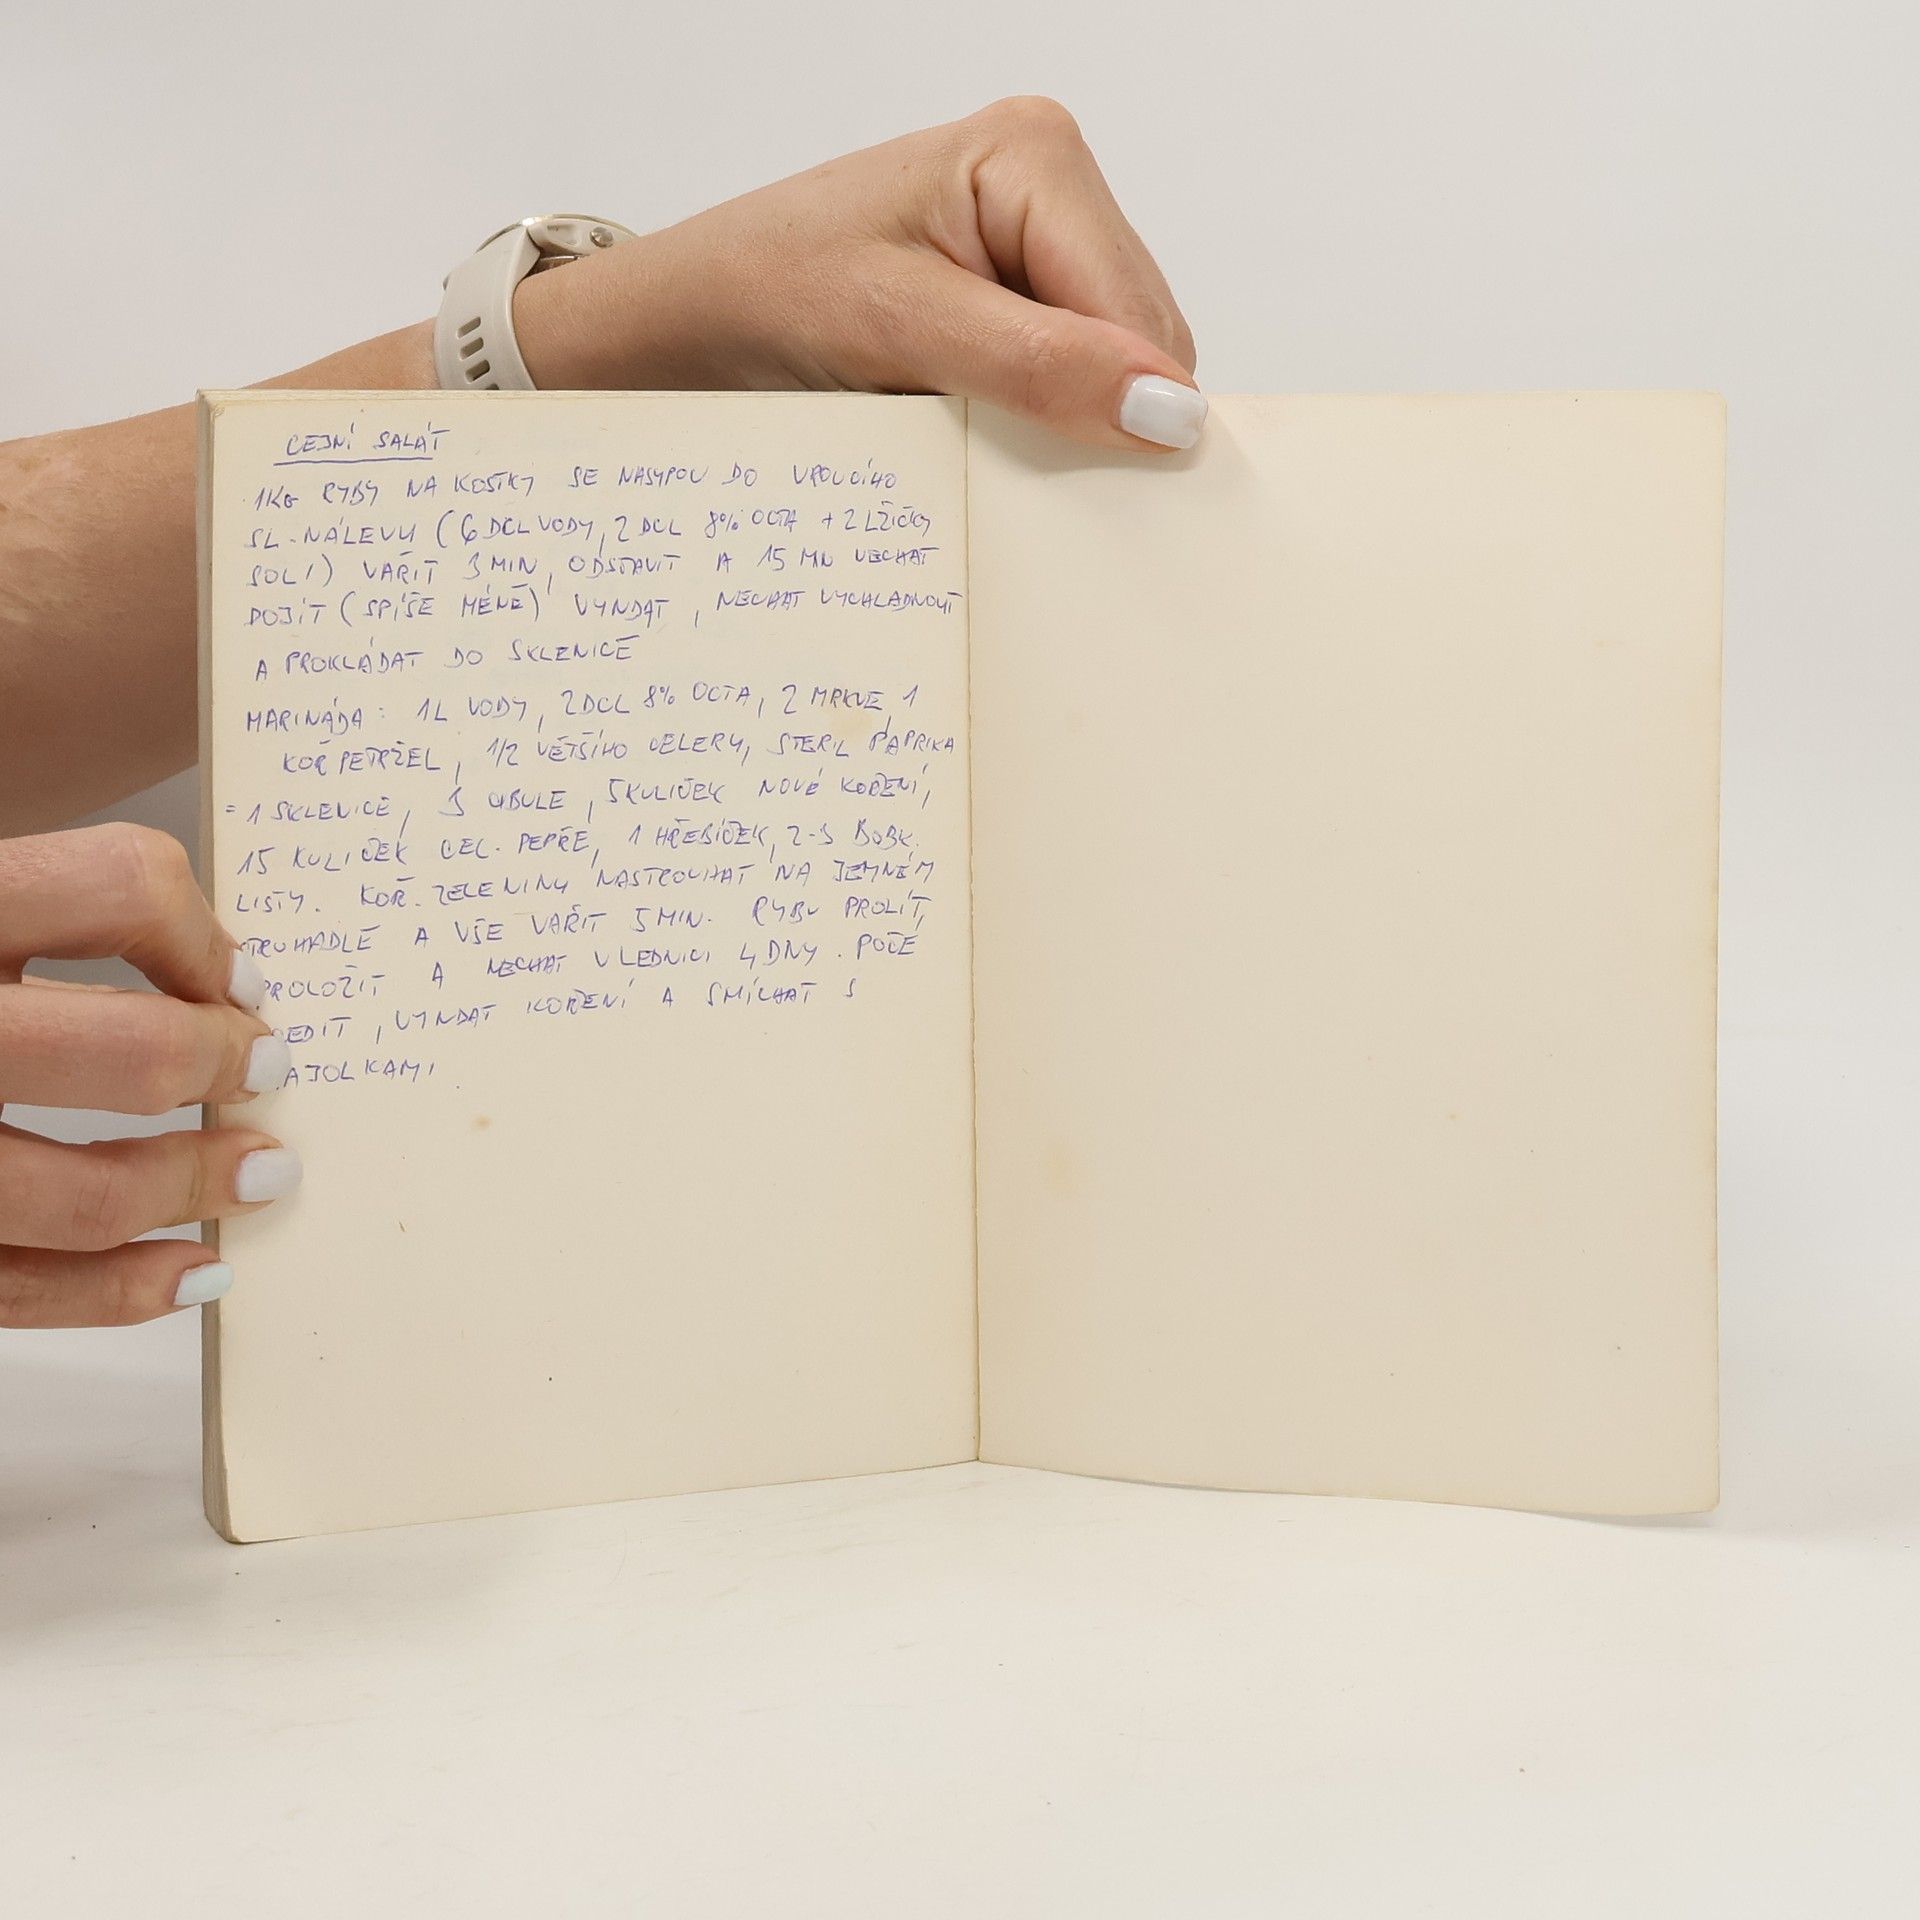 CEJNÍ SALÁT
1KG RYBY NA KOSTKY SE NASYPOU DO VROUCÍHO
SL. NÁLEVU (6 DCL VODY, 2 DCL 8% OCTA + 2 LŽIČKY
SOLI) VAŘIT 3 MIN, ODSTAVIT A 15 MIN NECHAT
DOJÍT (SPÍŠE MÉNĚ) VYNDAT, NECHAT VYCHLADNOUT
A PROKLÁDAT DO SKLENICE
MARINÁDA: 1L VODY, 2DCL 8% OCTA, 2 MRKVE, 1
KOŘ PETRŽEL, 1/2 VĚTŠÍHO CELERU, STERIL PAPRIKA
= 1 SKLENICE, 3 CIBULE, 5 KULIČEK NOVÉ KOŘENÍ,
15 KULIČEK CEL. PEPŘE, 1 HŘEBÍČEK, 2-3 BOBK.
LISTY. KOŘ. ZELENINU NASTROUHAT NA JEMNÉM
STRUHADLE A VŠE VAŘIT 5 MIN. RYBU PROLÍT,
PROLOŽIT A NECHAT V LEDNICI 4 DNY. POČE
CEDIT, VYNDAT KOŘENÍ A SMÍCHAT S
AJOLKAMI.